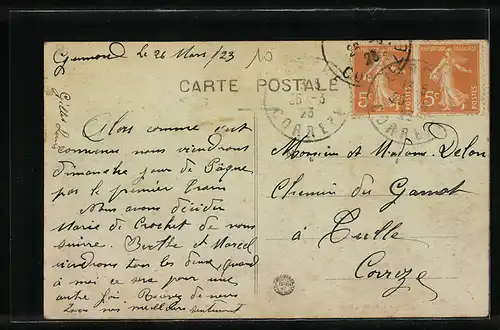 le 26 Mars/23
10
CARTE POSTALE
RÉPUBLIQUE FRANÇAISE
5c
POSTES
26 -3
23
CORRÈZE
Alors comme c'est
convenu nous viendrons
dimanche jour de Pâque
par le premier train
Nous avons décider
Marie de Crochet de nous
suivre. Berthe et Marcel
viendrons tous les deux, quand
à moi ce sera pour une
autre foi. Recevez de nous
Tous nos meilleurs sentiment
Monsieur et Madame Delon
Chemin du
à Tulle
Corrèze